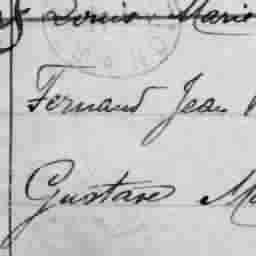 Louis Marie
Fernand Jean
Gustave